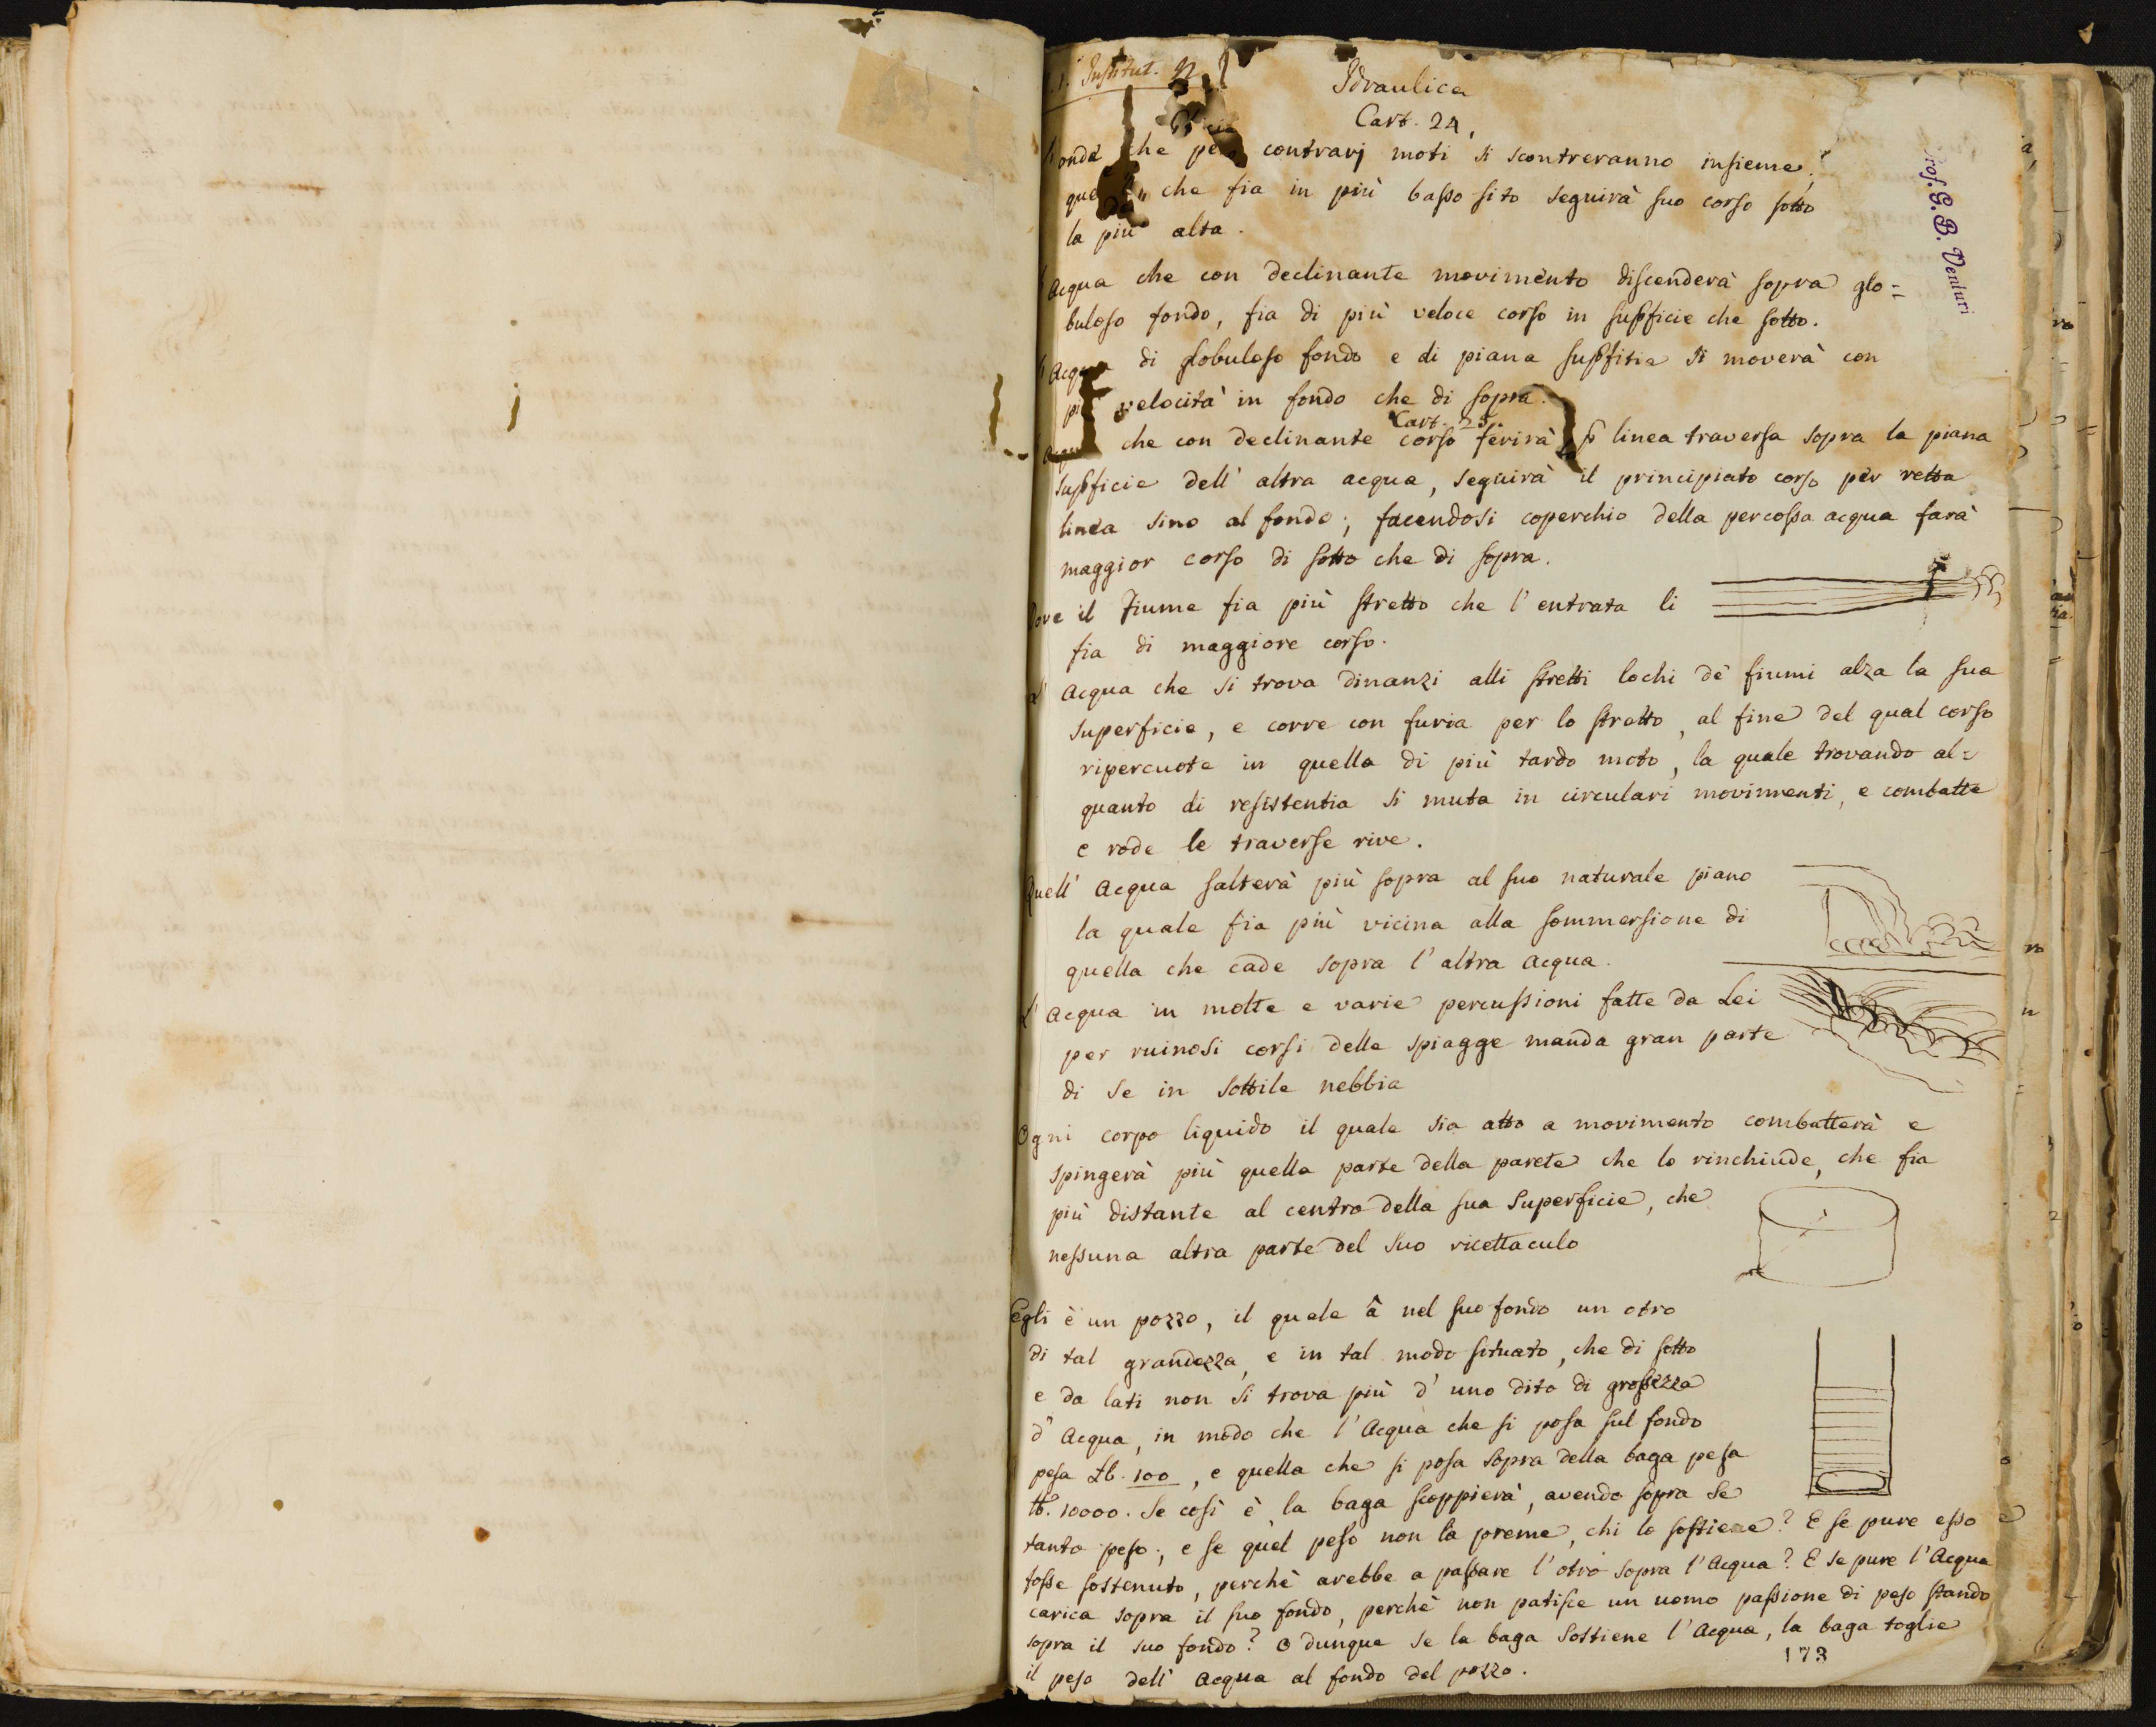 Institut.
Idraulica
Cart. 24,
onda che per contrarj moti si scontreranno insieme,
que che fia in più basso sito seguirà suo corso sotto
la più alta.
Acqua che con declinante movimento discenderà sopra glo=
buloso fondo, fia di più veloce corso in supficie che sotto.
Acqua di globuloso fondo e di piana supfitie si moverà con
più velocità in fondo che di sopra.
Cart. 25.
Acqua che con declinante corso ferirà p linea traversa sopra la piana
supficie dell' altra acqua, seguirà il principiato corso per retta
linea sino al fondo; facendosi coperchio della percossa acqua farà
maggior corso di sotto che di sopra.
Dove il Fiume fia più stretto che l'entrata li
fia di maggiore corso.
L' Acqua che si trova dinanzi alli stretti lochi de' fiumi alza la sua
superficie, e corre con furia per lo stretto, al fine del qual corso
ripercuote in quella di più tardo moto, la quale trovando al=
quanto di resistentia si muta in circulari movimenti, e combatte
e rode le traverse rive.
Quell' Acqua salterà più sopra al suo naturale piano
la quale fia più vicina alla sommersione di
quella che cade sopra l'altra Acqua.
L' Acqua in molte e varie percussioni fatte da Lei
per ruinosi corsi delle spiagge manda gran parte
di se in sottile nebbia
Ogni corpo liquido il quale sia atto a movimento combatterà e
spingerà più quella parte della parete che lo rinchiude, che fia
più distante al centro della sua Superficie, che
nessuna altra parte del suo ricettaculo
Egli è un pozzo, il quale â nel suo fondo un otro
di tal grandezza, e in tal modo situato, che di sotto
e da lati non si trova più d' uno dito di grossezza
d' Acqua, in modo che l'Acqua che si posa sul fondo
pesa Lb. 100, e quella che si posa sopra della baga pesa
lb. 10000. Se così è, la baga scoppierà, avendo sopra se
tanto peso; e se quel peso non la preme, chi lo sostiene? E se pure esso
fosse sostenuto, perchè arebbe a passare l'otro sopra l'Acqua? E se pure l'Acqua
carica sopra il suo fondo, perchè non patisce un uomo passione di peso stando
sopra il suo fondo? O dunque se la baga sostiene l'Acqua, la baga toglie
il peso dell' Acqua al fondo del pozzo.
173
Prof. G. B. Venturi